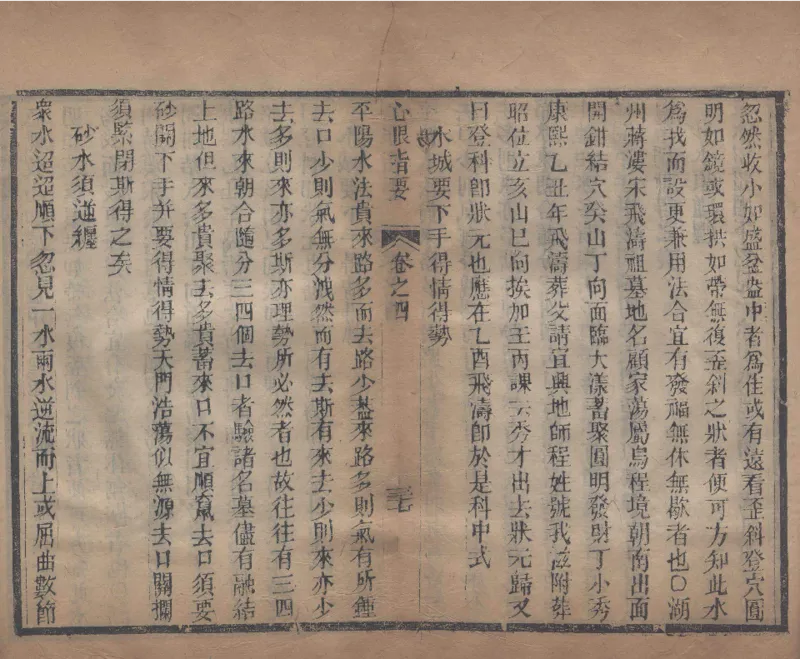 忽然收小如盛盆盎中者爲佳或有遠看歪斜登穴圓
明如鏡或環拱如帶無復歪斜之狀者便可方知此水
爲我而設更兼用法合宜有發福無休無歇者也〇湖
州蔣漊宋飛濤祖墓地名顧家蕩屬烏程境朝南出面
開鉗結穴癸山丁向面臨大漾蓄聚圓明發財丁小秀
康熙乙丑年飛濤葬父請宜興地師程姓號我茲附葬
昭位立亥山巳向挨加壬丙課云秀才出去狀元歸又
曰登科卽狀元也應在乙酉飛濤卽於是科中式
水城要下手得情得勢
心眼指要
卷之四
三七
平陽水法貴來路多而去路少蓋來路多則氣有所鍾
去口少則氣無分洩然而有去斯有來去少則來亦少
去多則來亦多斯亦理勢所必然者也故往往有三四
路水來朝合隨分三四個去口者驗諸名墓儘有融結
上地但來多貴聚去多貴蓄來口不宜順竄去口須要
砂關下手并要得情得勢天門浩蕩似無源去口關攔
須緊閉斯得之矣
砂水須逆纏
衆水迢迢順下忽見一水兩水逆流而上或屈曲數節